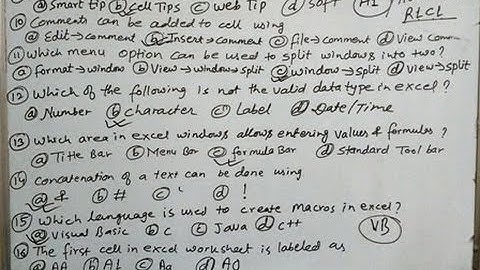 ⓐ Smart tip ⓑ Cell Tips ⓒ Web Tip ⓓ Soft
A1
R1C1
⑩ Comments can be added to cell using
ⓐ Edit → comment ⓑ Insert → comment ⓒ file → comment ⓓ View comm
⑪ Which menu option can be used to split windows into two?
ⓐ format → window ⓑ View → window → split ⓒ window → split ⓓ view → split
⑫ Which of the following is not the valid data type in excel?
ⓐ Number ⓑ Character ⓒ Label ⓓ Date/Time
⑬ Which area in excel windows allows entering values & formulas?
ⓐ Title Bar ⓑ Menu Bar ⓒ formula Bar ⓓ Standard Tool bar
⑭ Concatenation of a text can be done using
ⓐ & ⓑ # ⓒ ' ⓓ !
⑮ Which language is used to create macros in excel?
ⓐ Visual Basic ⓑ C ⓒ Java ⓓ C++ VB
⑯ The first cell in excel worksheet is labeled as
ⓐ AA ⓑ A1 ⓒ Aa ⓓ A0